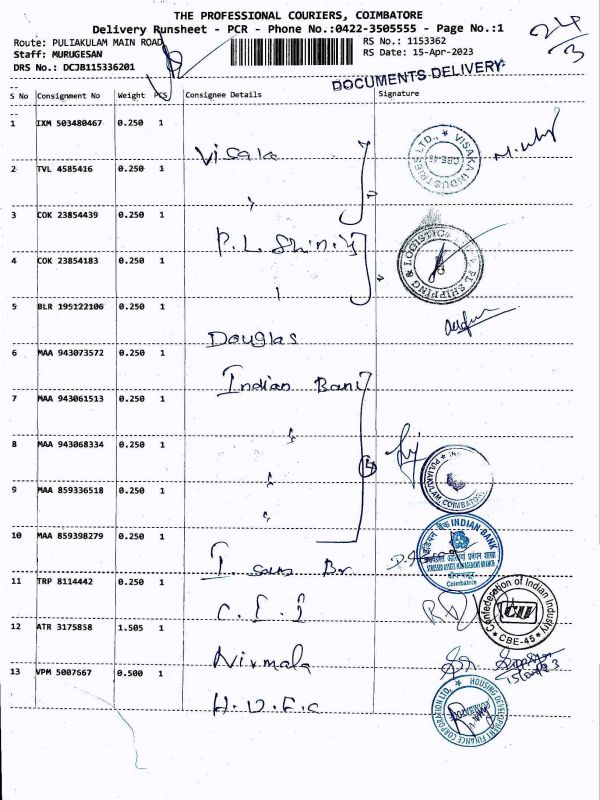 THE PROFESSIONAL COURIERS, COIMBATORE
Delivery Runsheet - PCR - Phone No.:0422-3505555 - Page No.:1
24/3
Route: PULIAKULAM MAIN ROAD
RS No.: 1153362
Staff: MURUGESAN
RS Date: 15-Apr-2023
DRS No.: DCJB115336201
DOCUMENTS DELIVERY
S No Consignment No Weight PCS Consignee Details Signature
1 IXM 503480467 0.250 1
Visaka
VISAKA INDUSTRIES LTD., CBE-45
2 TVL 4585416 0.250 1
3 COK 23854439 0.250 1
P.L. Shin.
PL SHIPPING & LOGISTICS
4 COK 23854183 0.250 1
5 BLR 195122106 0.250 1
Douglas
6 MAA 943073572 0.250 1
Indian Bank
7 MAA 943061513 0.250 1
8 MAA 943068334 0.250 1
PULIAKULAM, COIMBATORE
9 MAA 859336518 0.250 1
10 MAA 859398279 0.250 1
INDIAN BANK
STRESSED ASSETS MANAGEMENT BRANCH
Coimbatore
11 TRP 8114442 0.250 1
C.I.I
Confederation of Indian Industry
CII
CBE-45
12 ATR 3175858 1.505 1
Nirmala
13 VPM 5007667 0.500 1
H.D.F.C
HOUSING DEVELOPMENT FINANCE CORPORATION LTD.